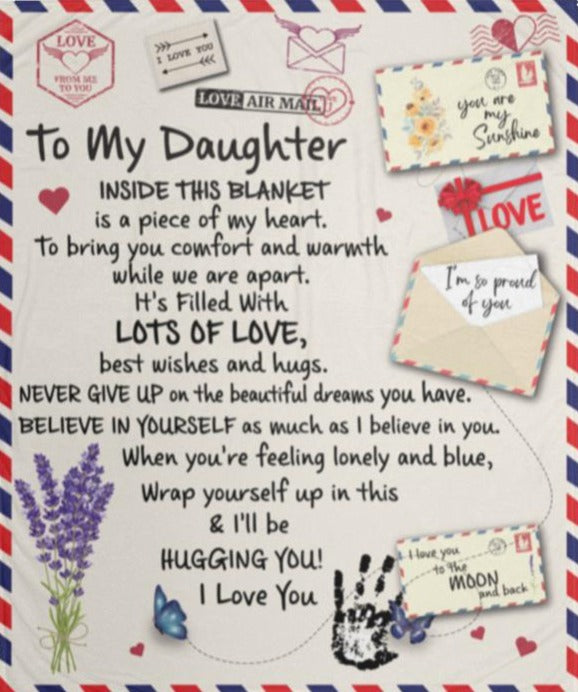 LOVE
FROM ME
TO YOU
I LOVE YOU
LOVE AIR MAIL
you are
my
Sunshine
To My Daughter
INSIDE THIS BLANKET
is a piece of my heart.
To bring you comfort and warmth
while we are apart.
It's Filled With
LOTS OF LOVE,
best wishes and hugs.
NEVER GIVE UP on the beautiful dreams you have.
BELIEVE IN YOURSELF as much as I believe in you.
When you're feeling lonely and blue,
Wrap yourself up in this
& I'll be
HUGGING YOU!
I Love You
LOVE
I'm so proud
of you
I love you
to the
MOON
and back